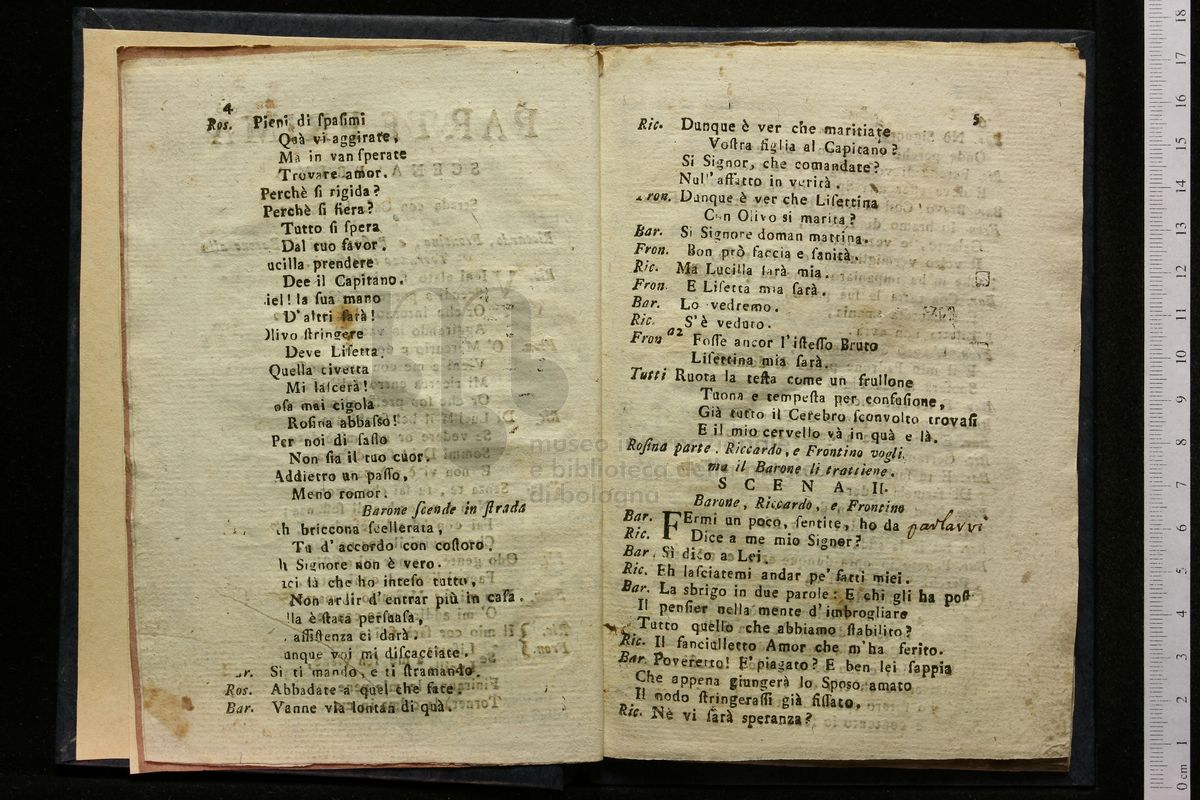 4
Ros. Pieni di spasimi
Quà vi aggirate,
Ma in van sperate
Trovare amor.
Perchè si rigida?
Perchè si fiera?
Tutto si spera
Dal tuo favor.
ucilla prendere
Dee il Capitano.
iel! la sua mano
D'altri sarà!
Olivo stringere
Deve Lisetta
Quella civetta
Mi lascerà!
osa mai cigola
Rosina abbasso!
Per noi di sasso
Non sia il tuo cuor.
Addietro un passo,
Meno romor.
Barone scende in strada
h briccona scellerata,
Tu d'accordo con costoro.
h Signore non è vero.
ici là che ho inteso tutto,
Non ardir d'entrar più in casa.
lla è stata persuasa,
assistenza ci darà.
unque voi mi discacciate.
ar. Si ti mando, e ti stramando.
Ros. Abbadate a quel che fate.
Bar. Vanne via lontan di quà.
5
Ric. Dunque è ver che maritiate
Vostra figlia al Capitano?
Si Signor, che comandate?
Null' affatto in verità.
Fron. Dunque è ver che Lisettina
Con Olivo si marita?
Bar. Si Signore doman mattina.
Fron. Bon prò faccia e sanità.
Ric. Ma Lucilla sarà mia.
Fron. E Lisetta mia sarà.
Bar. Lo vedremo.
Ric. S'è veduto.
Fron a2 Fosse ancor l'istesso Bruto
Lisettina mia sarà.
Tutti Ruota la testa come un frullone
Tuona e tempesta per confusione,
Già tutto il Cerebro sconvolto trovasi
E il mio cervello và in quà e là.
Rosina parte. Riccardo, e Frontino vogli.
ma il Barone li trattiene.
SCENA II.
Barone, Riccardo, e Frontino
Bar. FErmi un poco, sentite, ho da parlarvi
Ric. Dice a me mio Signor?
Bar. Sì dico a Lei.
Ric. Eh lasciatemi andar pe' fatti miei.
Bar. La sbrigo in due parole: E chi gli ha post
Il pensier nella mente d'imbrogliare
Tutto quello che abbiamo stabilito?
Ric. Il fanciulletto Amor che m'ha ferito.
Bar. Poveretto! E' piagato? E ben lei sappia
Che appena giungerà lo Sposo amato
Il nodo stringerassi già fissato.
Ric. Nè vi sarà speranza?
museo
e biblioteca
di bologna